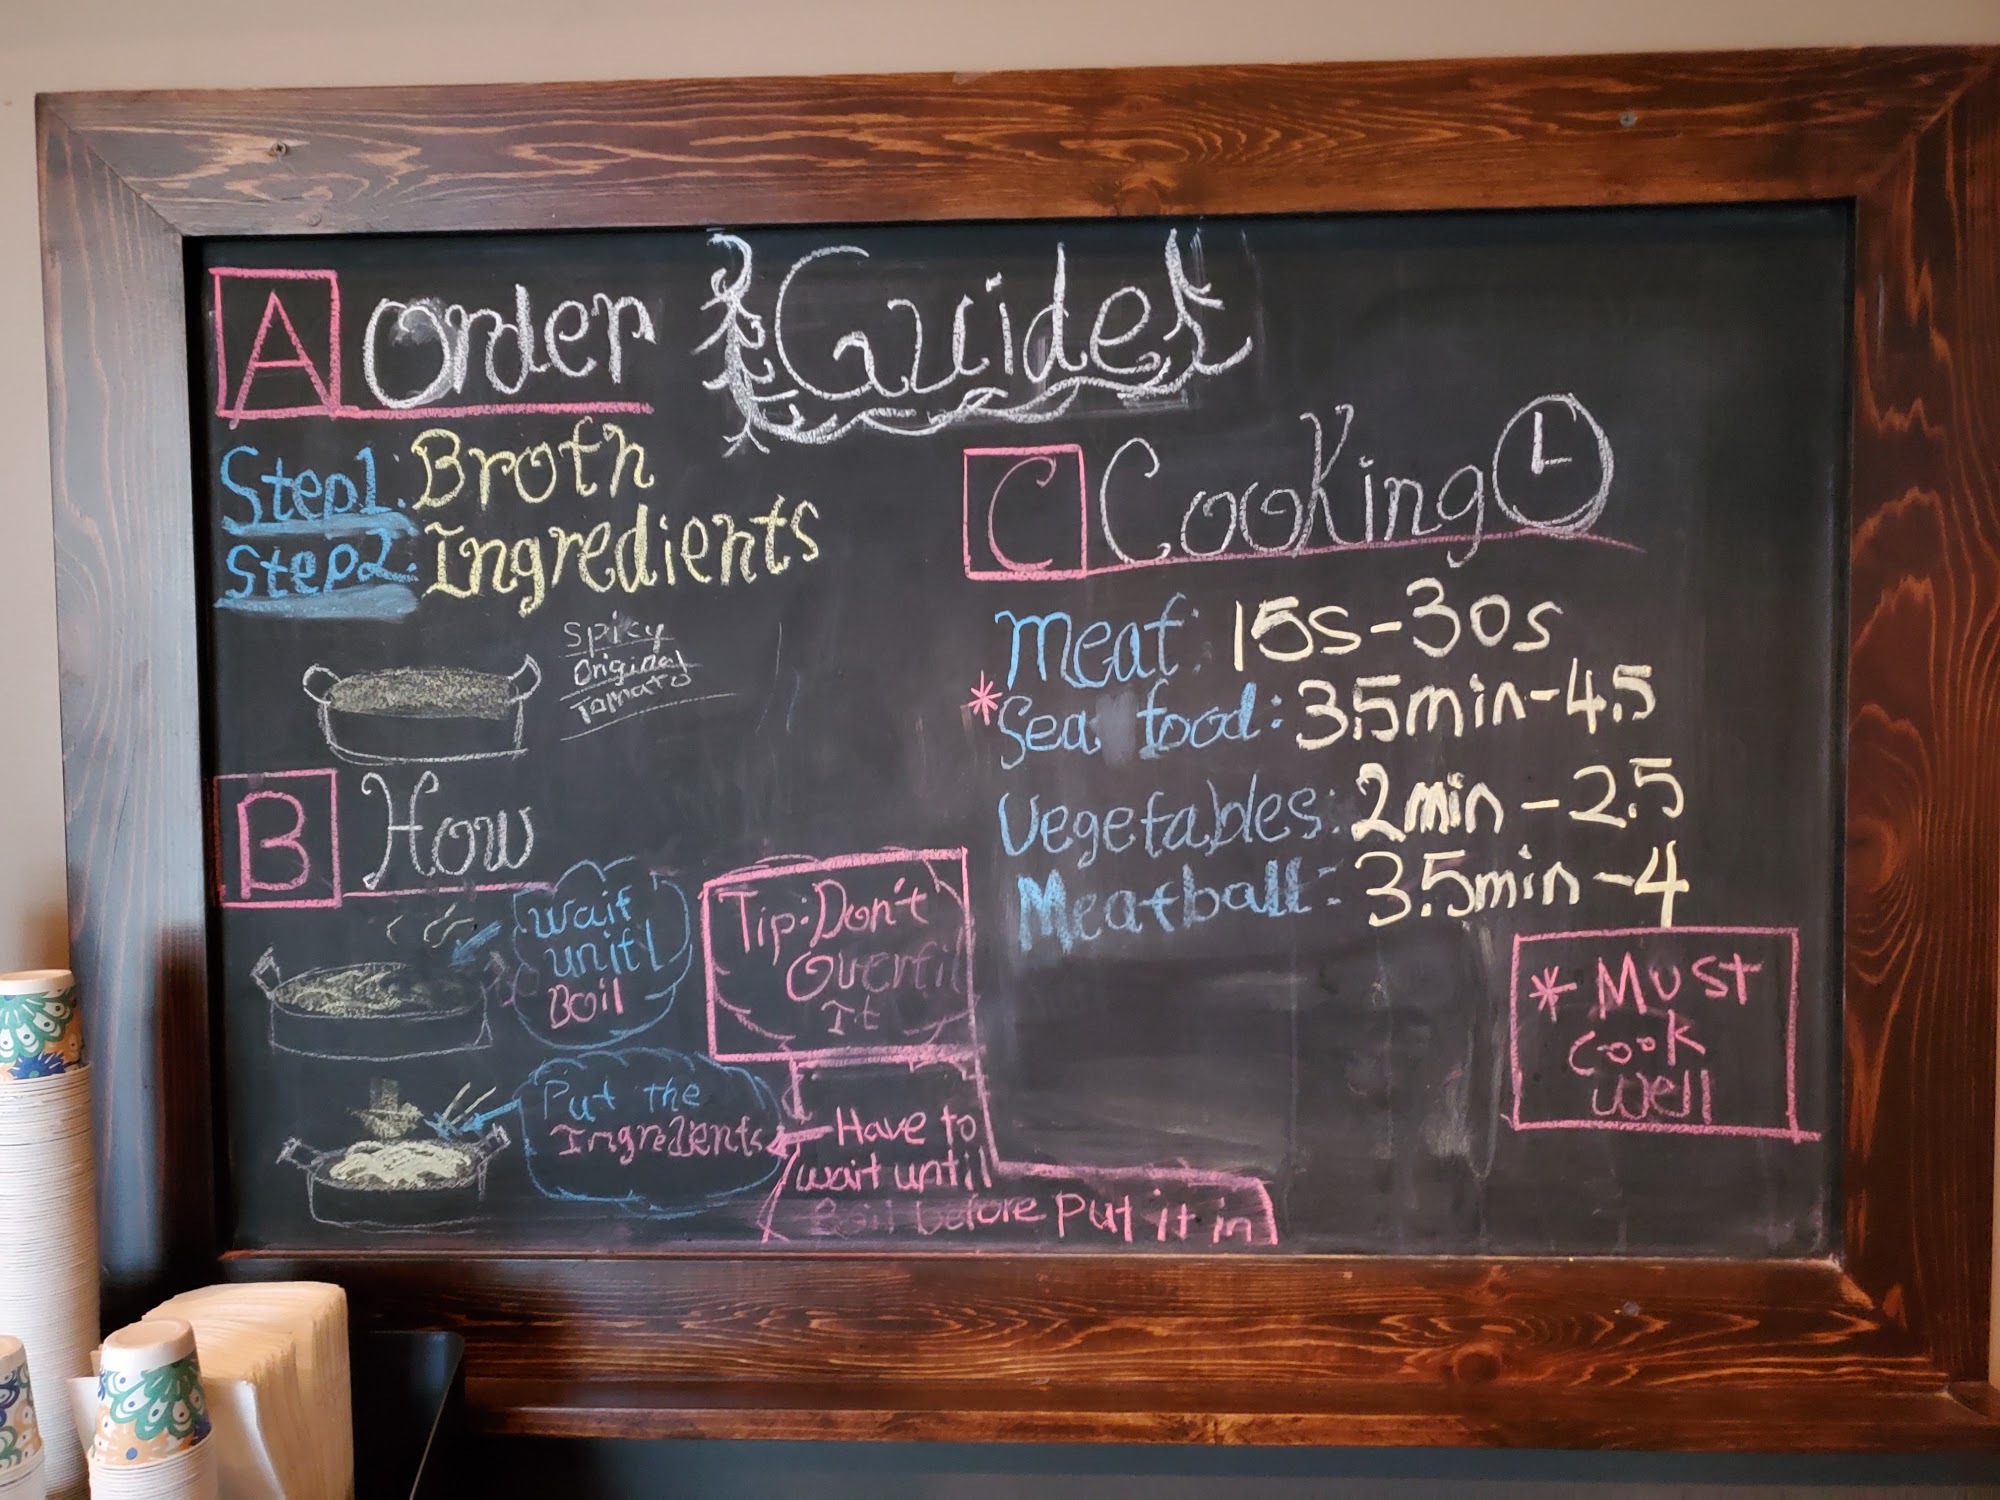 Guide
A Order
Step1: Broth
Step2: Ingredients
Spicy
Original
Tomato
B How
Wait
unitl
Boil
Tip: Don't
Overfil
It
Put the
Ingredients
Have to
wait until
Boil before Put it in
C Cooking
Meat: 15s-30s
* Sea food: 3.5min-4.5
Vegetables: 2min-2.5
Meatball: 3.5min-4
* Must
cook
well